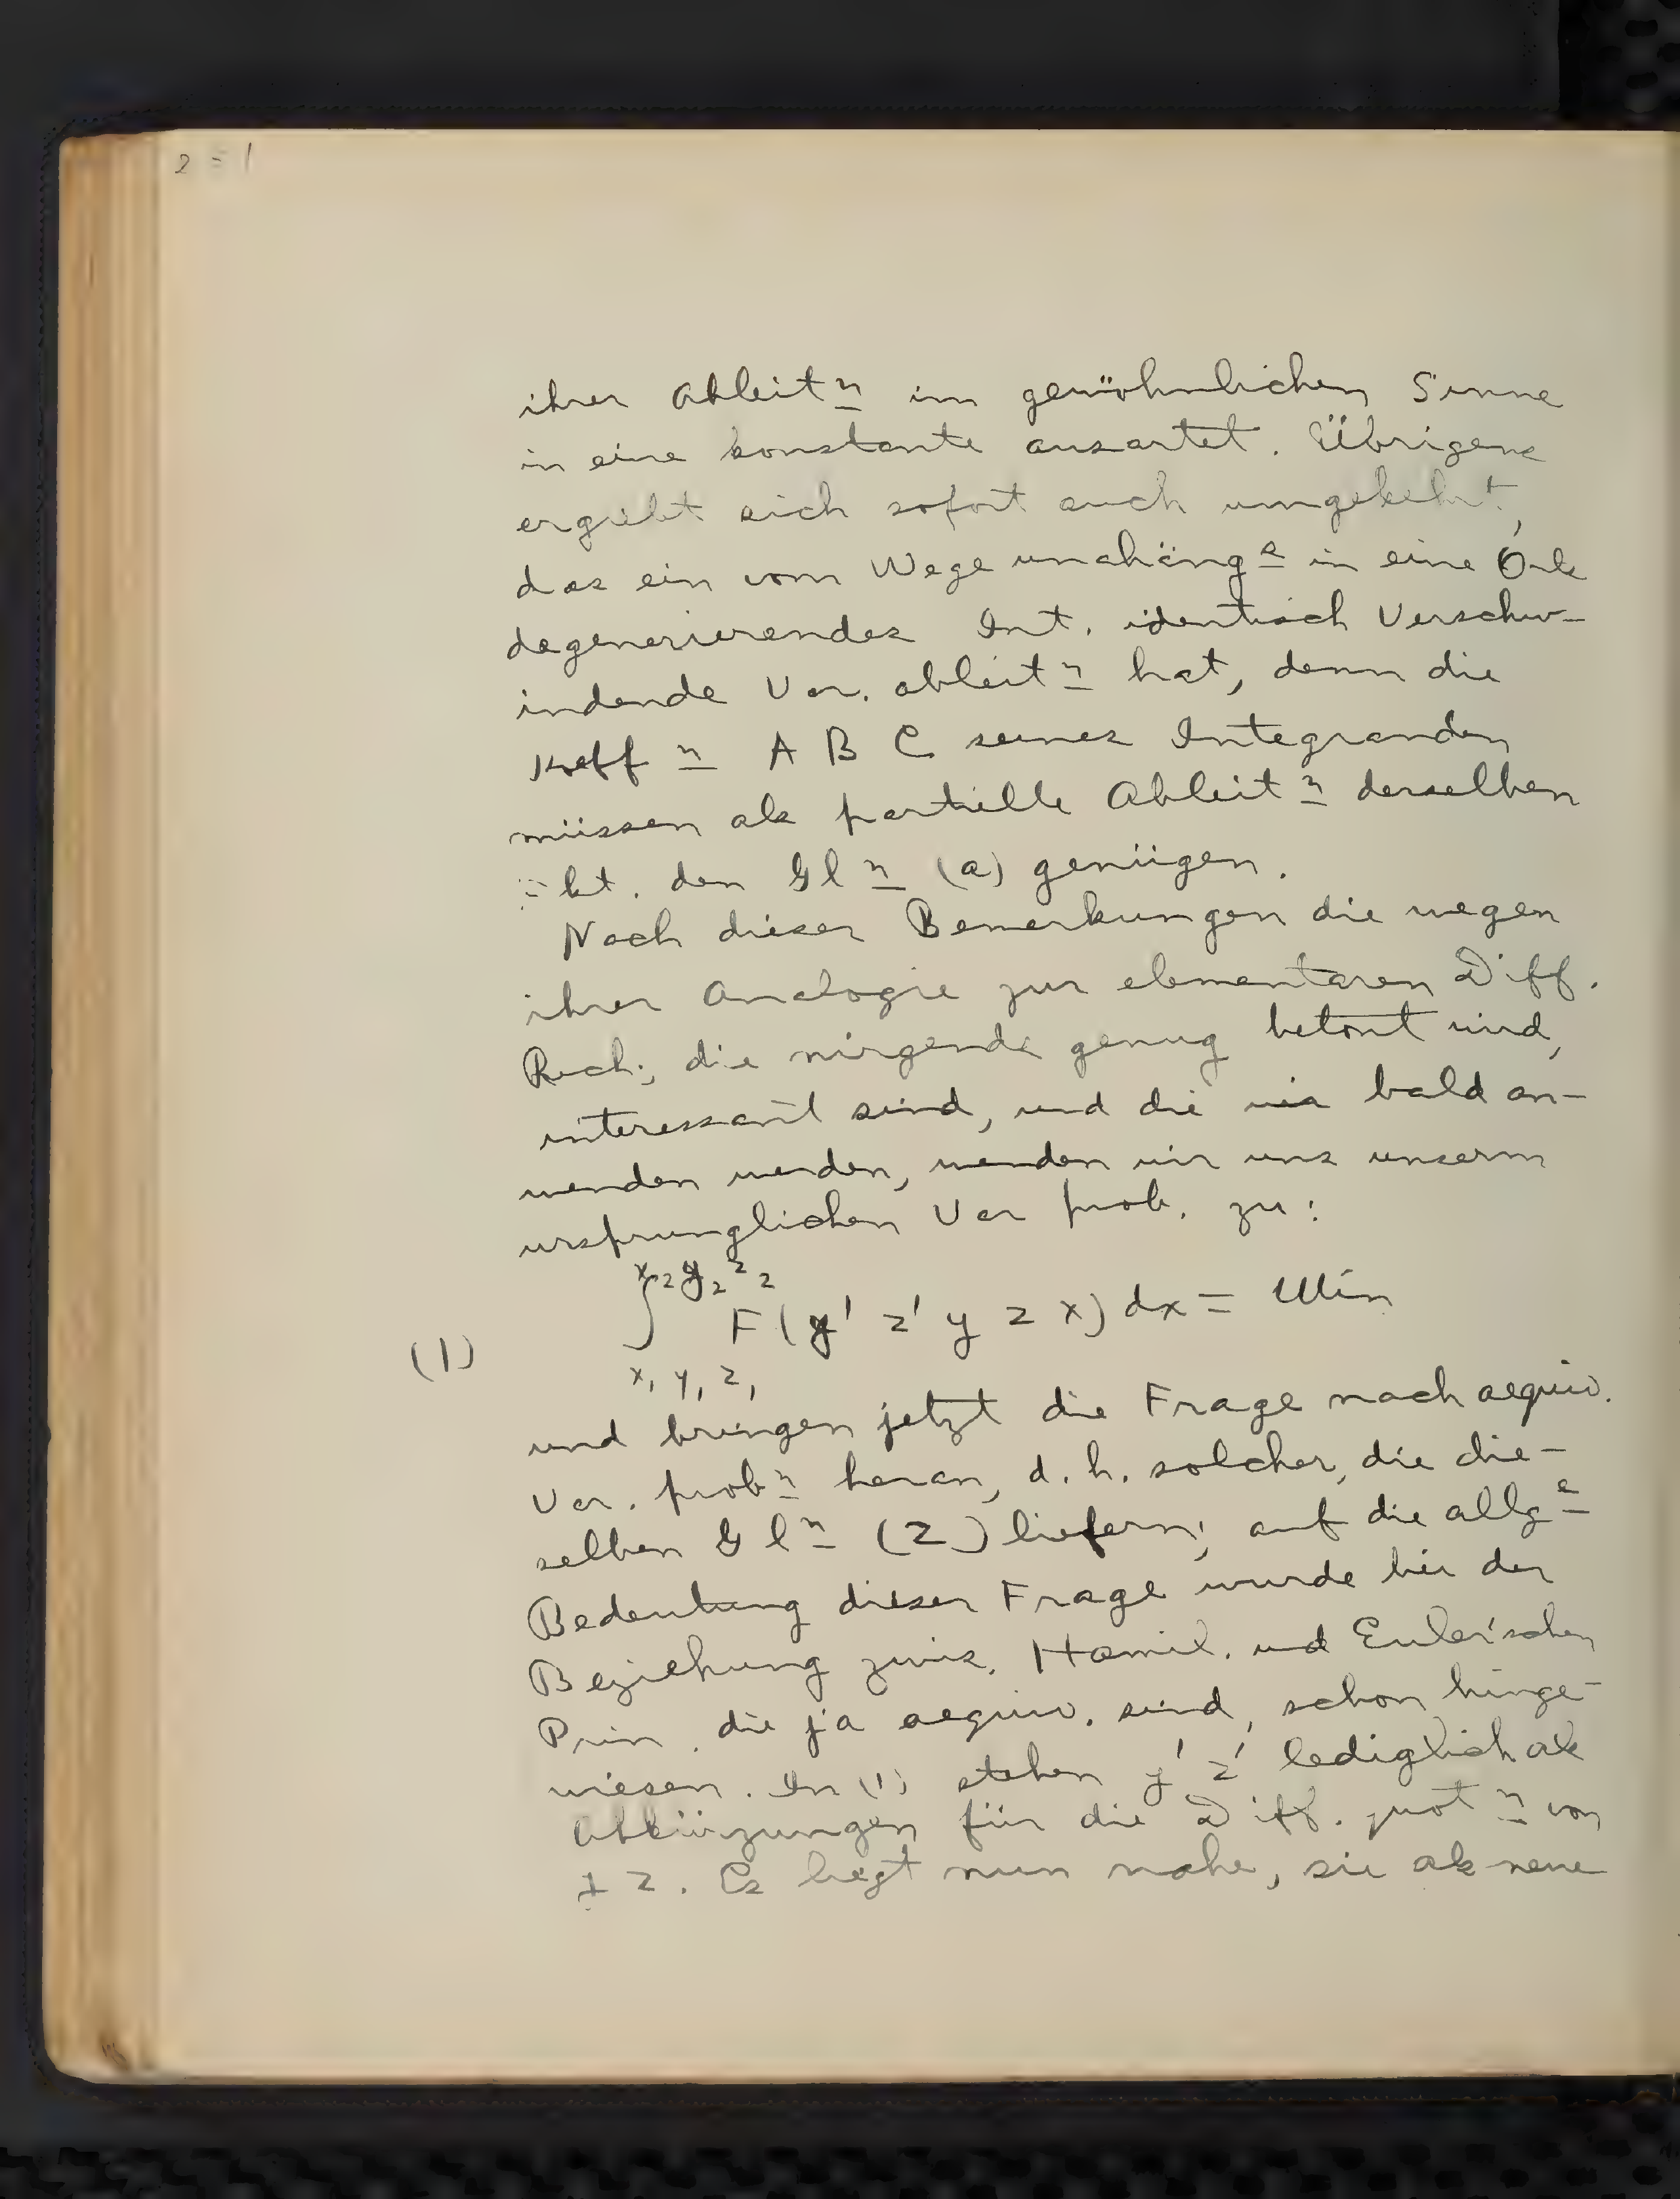 ihrer Ableitn im gewöhnlichen Sinne
in eine konstante ausartet. Übrigens
ergiebt sich sofort auch umgekehrt,
das ein vom Wege unahänge in eine
degenerierendes Int. identisch Verschw-
indende Var. ableitn hat, denn die
Koeffn A B C seines Integranden
müssen als partielle Ableitn derselben
den Gln (a) genügen.
Nach dieser Bemerkungen die wegen
ihrer Analogie zur elementaren Diff.
Rech., die nirgends genug betont wird,
interessant sind, und die wir bald an-
wenden werden, wenden wir uns unserm
ursprunglichen Var prob. zu:
(1) ∫ x2 y2 z2 x1 y1 z1 F(y' z' y z x) dx = Min
und bringen jetzt die Frage nach aequiv.
Var. probn heran, d. h. solcher, die die-
selben Gln (2) liefern; auf die allge
Bedeutung dieser Frage wurde bei der
Beziehung zwis. Hamil. und Euler'schen
Prin. die ja aequiv. sind, schon hinge-
wiesen. In (1) stehen y' z' lediglich als
Abkürzungen für die Diff. quotn von
z. Es liegt nun nahe, sie als neue